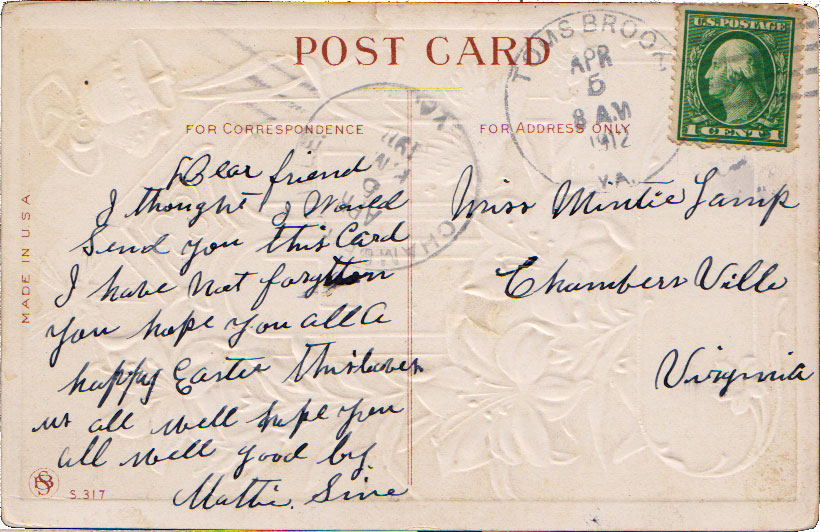 POST CARD
FOR CORRESPONDENCE
FOR ADDRESS ONLY
TOMS BROOK
APR
5
8 AM
1912
VA.
U.S. POSTAGE
1 CENT 1
Dear friend
I thought I Would
Send you this Card
I have not forgotton
you hope you all a
happy Easter this leaves
us all well hope you
all well good by
Mattie Sine
Miss Mintie Lamp
Chambers Ville
Virginia
MADE IN U.S.A
S. 317